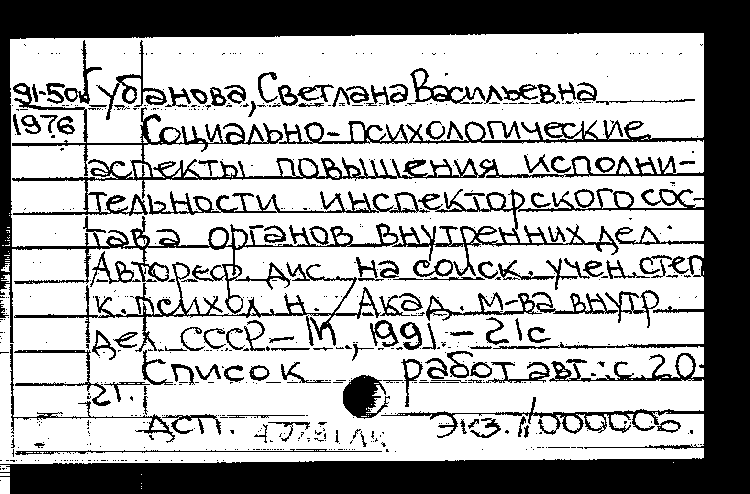 91-50к Губанова, Светлана Васильевна
1976 Социально-психологические
аспекты повышения исполни-
тельности инспекторского сос-
тава органов внутренних дел:
Автореф. дис. на соиск. учен. степ
к. психол. н. / Акад. м-ва внутр.
дел СССР. – М, 1991. – 21с.
Список работ авт.: с. 20-
21.
ДСП. 4.07.91 Экз. №000006.